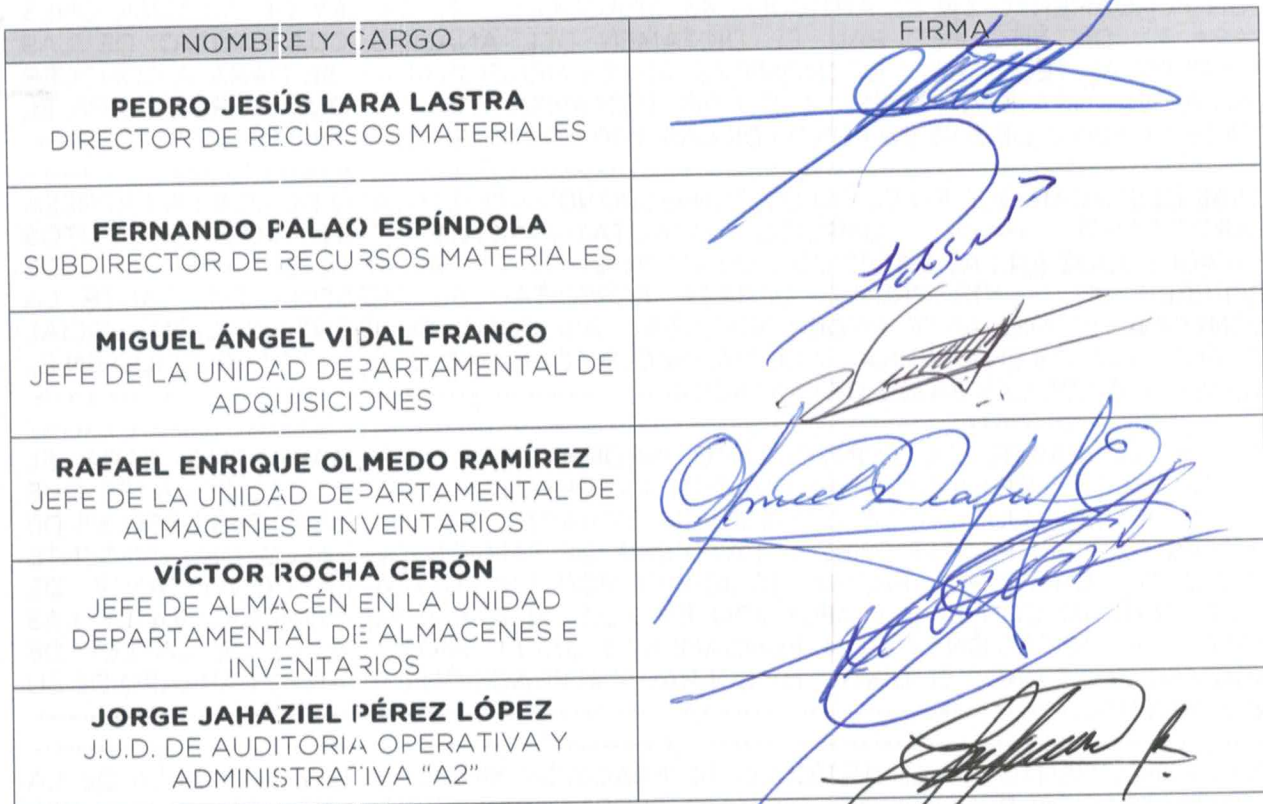 NOMBRE Y CARGO
FIRMA
PEDRO JESÚS LARA LASTRA
DIRECTOR DE RECURSOS MATERIALES
FERNANDO PALAO ESPÍNDOLA
SUBDIRECTOR DE RECURSOS MATERIALES
MIGUEL ÁNGEL VIDAL FRANCO
JEFE DE LA UNIDAD DEPARTAMENTAL DE
ADQUISICIONES
RAFAEL ENRIQUE OLMEDO RAMÍREZ
JEFE DE LA UNIDAD DEPARTAMENTAL DE
ALMACENES E INVENTARIOS
VÍCTOR ROCHA CERÓN
JEFE DE ALMACÉN EN LA UNIDAD
DEPARTAMENTAL DE ALMACENES E
INVENTARIOS
JORGE JAHAZIEL PÉREZ LÓPEZ
J.U.D. DE AUDITORIA OPERATIVA Y
ADMINISTRATIVA "A2"